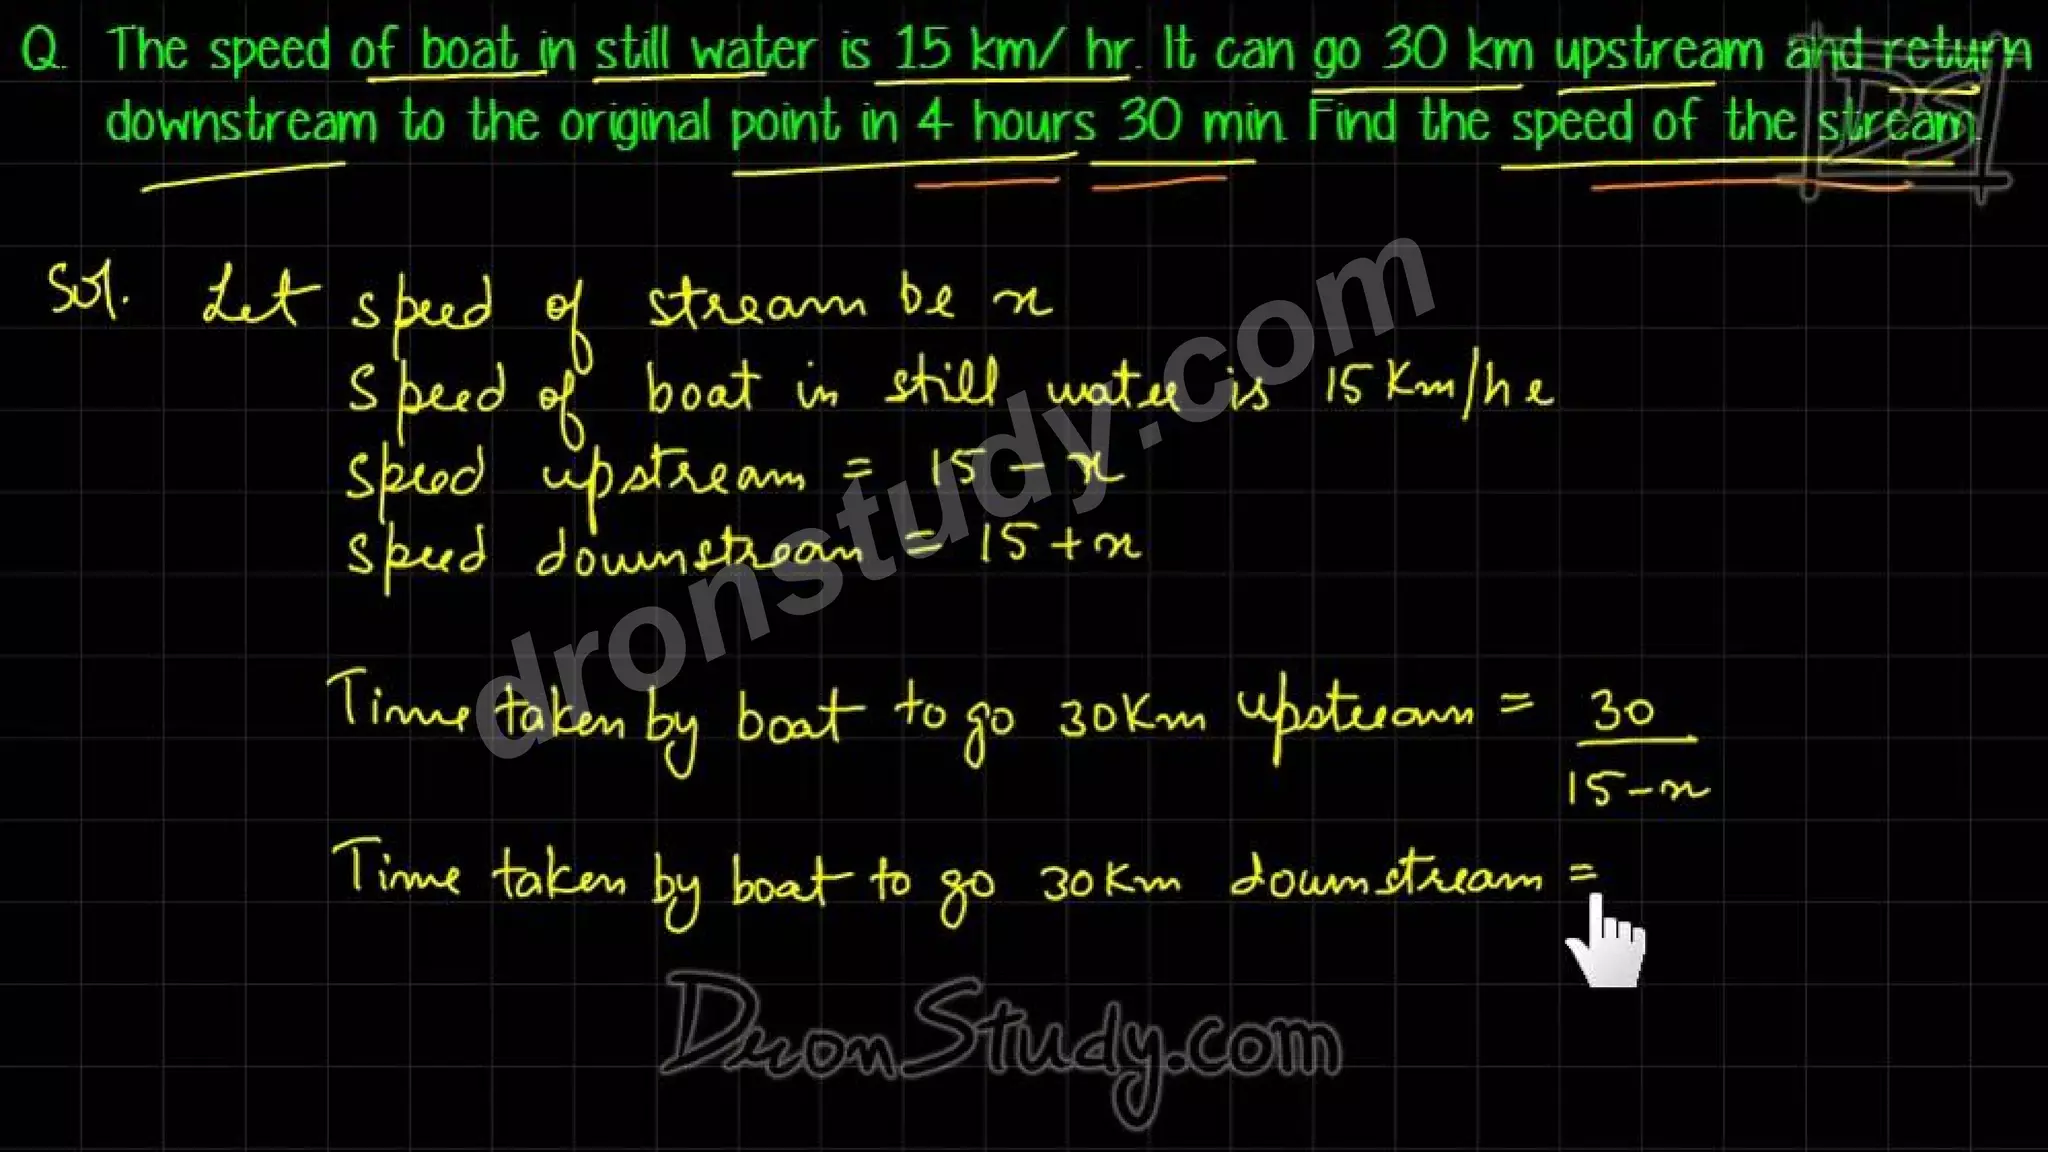 Q. The speed of boat in still water is 15 km/ hr. It can go 30 km upstream and return
downstream to the original point in 4 hours 30 min. Find the speed of the stream.
DS
Sol. Let speed of stream be x
Speed of boat in still water is 15 Km/hr
Speed upstream = 15 - x
Speed downstream = 15 + x
dronstudy.com
Time taken by boat to go 30 Km upstream = 30/(15-x)
Time taken by boat to go 30 Km downstream =
DronStudy.com